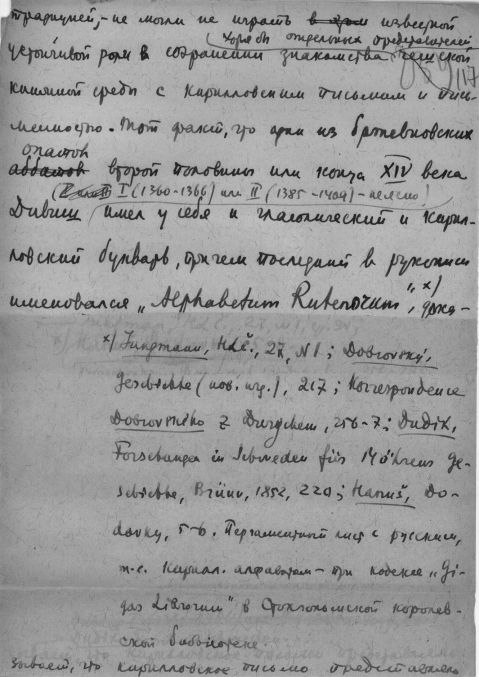 традицией, - не могли не играть известной
хотя бы отдельных представителей
устойчивой роли в сохранении знакомства чешской
117
книжной среды с кирилловским письмом и пись-
менностью. Тот факт, что один из бржевновских
опатов
аббатов второй половины или конца XIV века
I (1360-1366) или II (1385-1409) - неясно!
Дивиш имел у себя и глаголический и кирил-
ловский букварь, причем последний в рукописи
именовался „Alphabetum Rutenorum", x) дока-
x) Jungmann, H.L.Č., 27, N 1; Dobrovský,
Geschichte (нов. изд.), 217; Korrespondence
Dobrovského z Durychem, 256-7; Dudik,
Forschungen in Schweden für Mährens Ge-
schichte, Brünn, 1852, 220; Hanuš, Do-
davky, 5-6. Пергаментный лист с русским,
т.е. кирилл. алфавитом - при кодексе „Gi-
gas Librorum" в Стокгольмской королев-
ской библиотеке.
зывает, что кирилловское письмо представляло